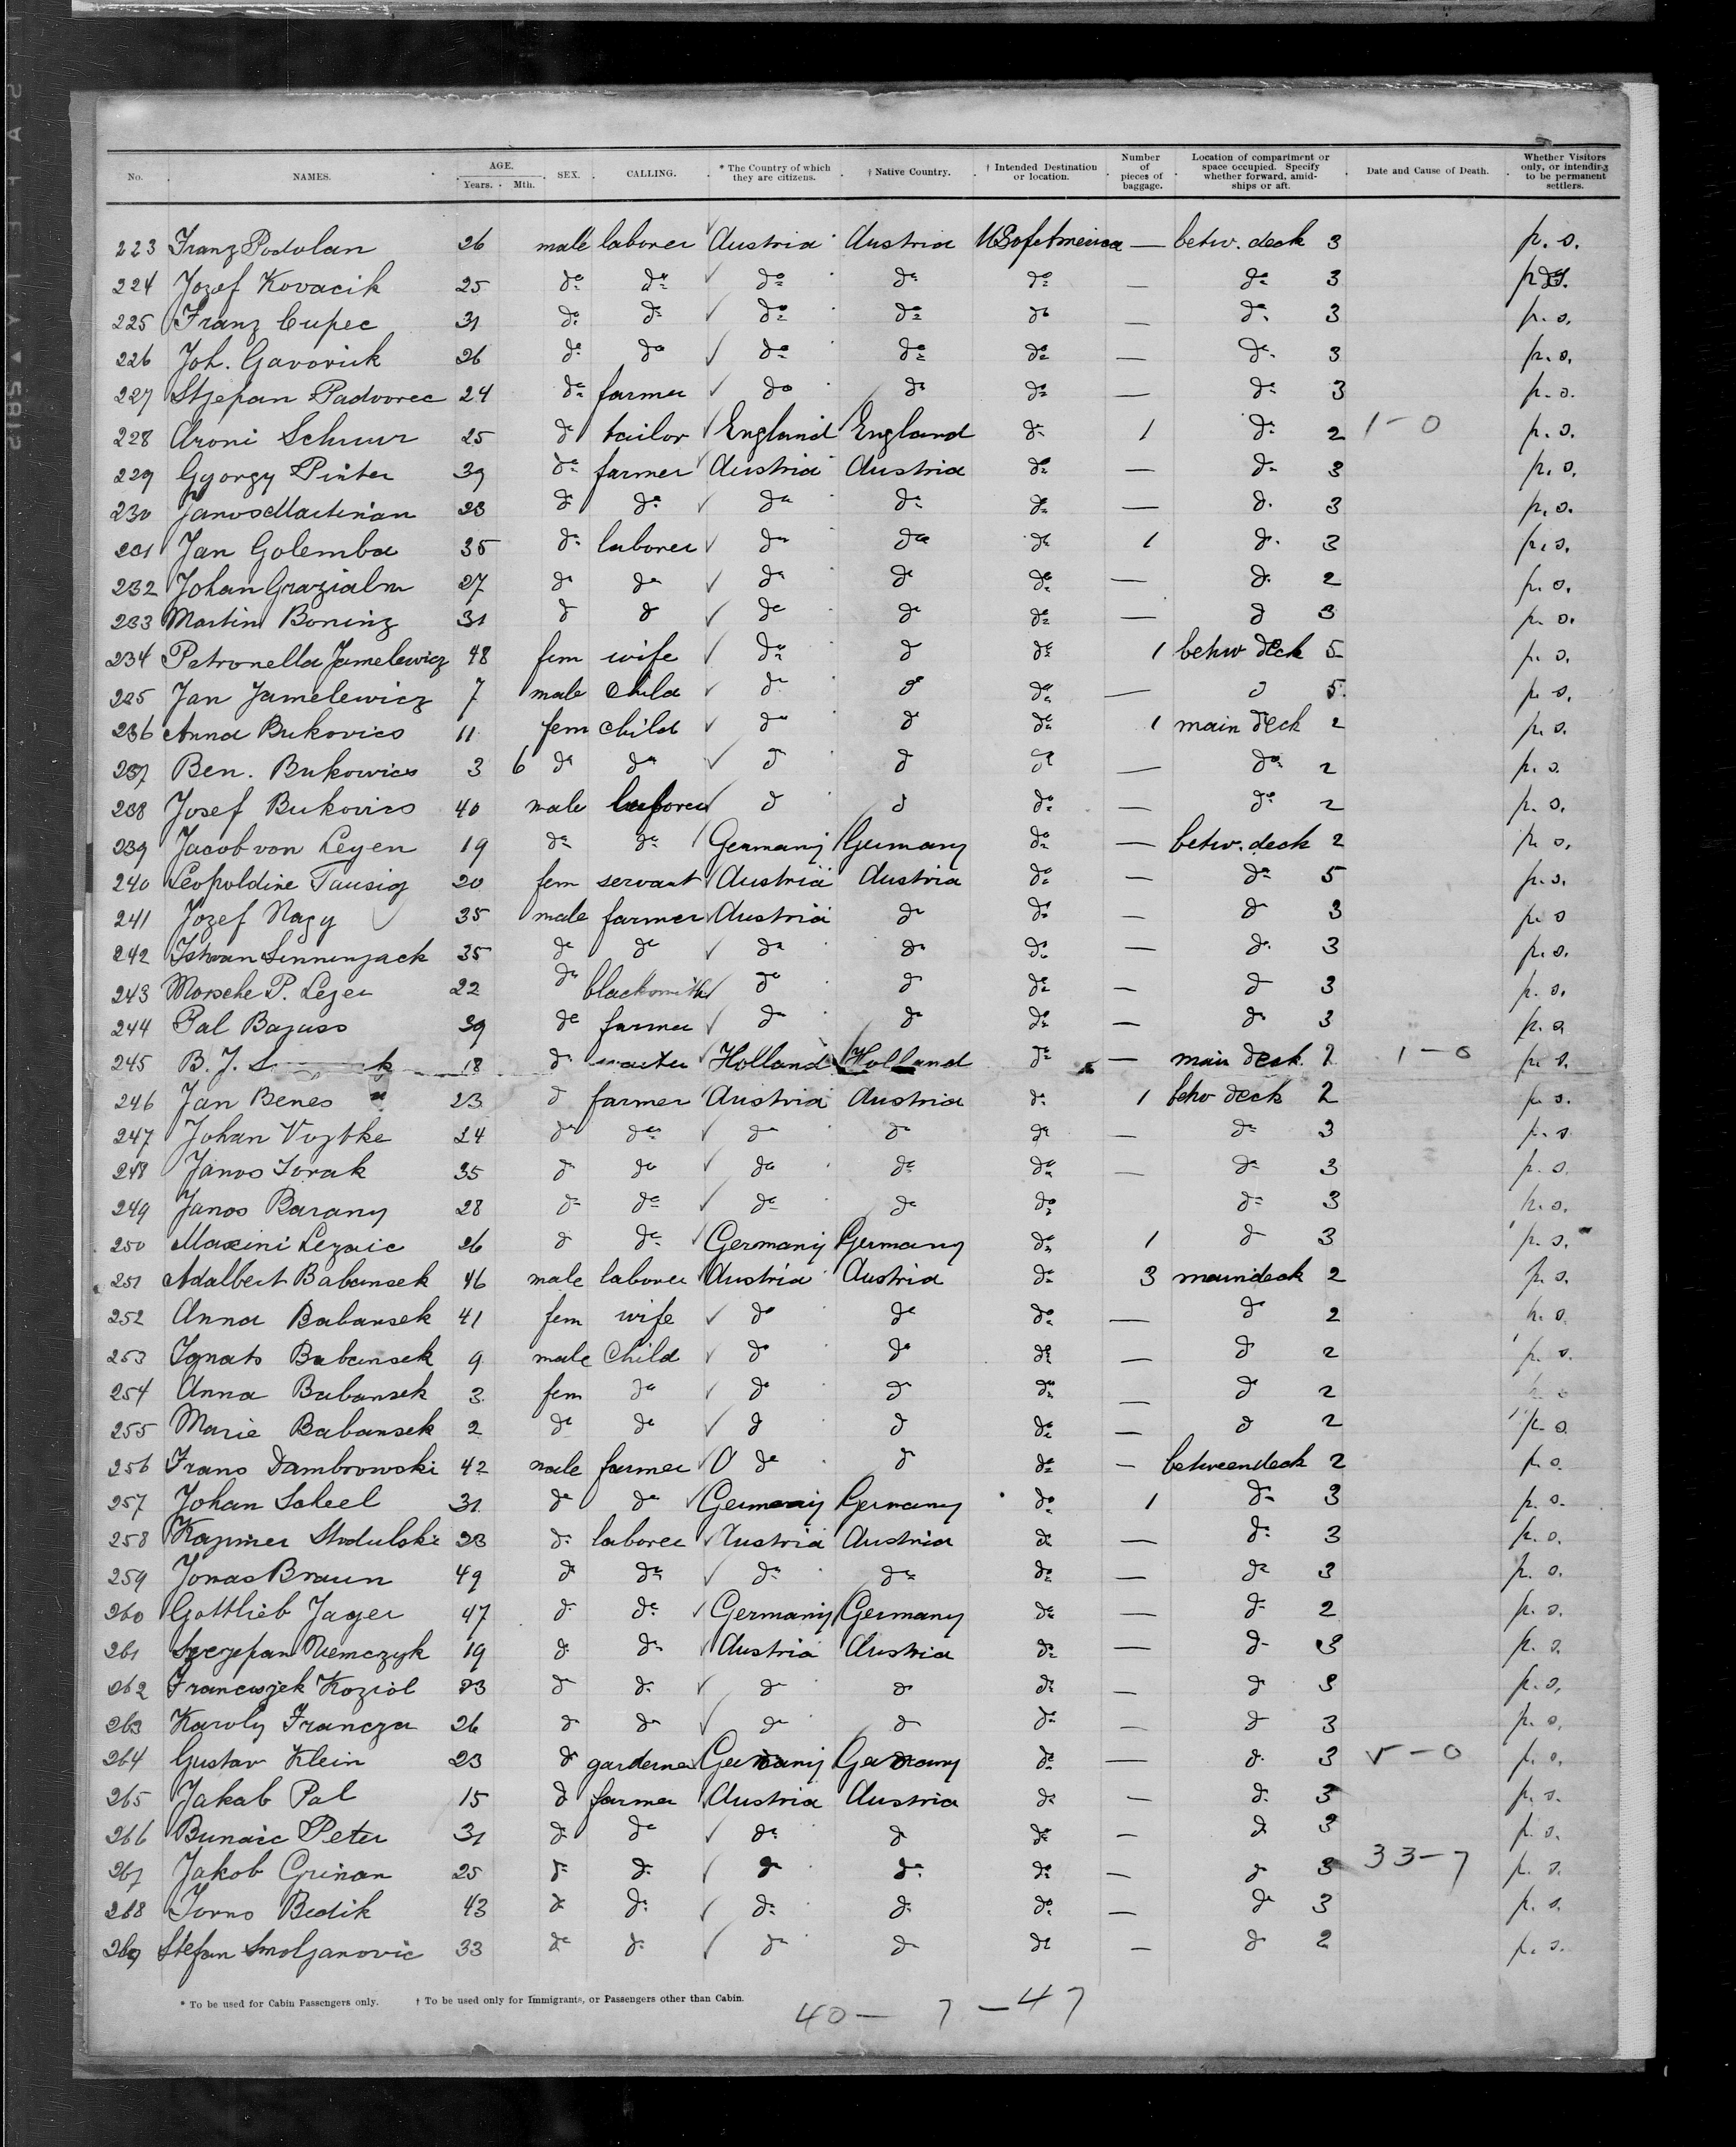 No. NAMES. AGE. Years. Mth. SEX. CALLING. * The Country of which they are citizens. † Native Country. † Intended Destination or location. Number of pieces of baggage. Location of compartment or space occupied. Specify whether forward, amidships or aft. Date and Cause of Death. Whether Visitors only, or intending to be permanent settlers.
223 Franz Podolan 26 male laborer Austria Austria US of America — betw. deck 3 p. s.
224 Jozef Kovacik 25 do do do do do — do 3 p. s.
225 Franz Cupec 31 do do do do do — do 3 p. s.
226 Joh. Gavorick 26 do do do do do — do 3 p. s.
227 Stjepan Padvorec 24 do farmer do do do — do 3 p. s.
228 Aroni Schuur 25 do tailor England England do 1 do 2 1 - 0 p. s.
229 Gyorgy Pinter 39 do farmer Austria Austria do — do 3 p. s.
230 Janos Martinan 28 do do do do do — do 3 p. s.
231 Jan Golemba 35 do laborer do do do 1 do 3 p. s.
232 Johan Grazialm 27 do do do do do — do 2 p. s.
233 Martin Boning 31 do do do do do — do 3 p. s.
234 Petronella Jamelewicz 48 fem wife do do do 1 betw deck 5 p. s.
235 Jan Jamelewicz 7 male child do do do — do 5 p. s.
236 Anna Bukovics 11 fem child do do do 1 main deck 2 p. s.
237 Ben. Bukowics 3 6 do do do do do — do 2 p. s.
238 Josef Bukovics 40 male laborer do do do — do 2 p. s.
239 Jacob von Leyen 19 do do Germany Germany do — betw. deck 2 p. s.
240 Leopoldine Tausig 20 fem servant Austria Austria do — do 5 p. s.
241 Jozef Nagy 35 male farmer Austria do do — do 3 p. s
242 Istvan Sinnenjack 35 do do do do do — do 3 p. s.
243 Morsche P. Lezer 22 do blacksmith do do do — do 3 p. s.
244 Pal Bajuss 39 do farmer do do do — do 3 p. s
245 B. J. 18 do waiter Holland Holland do — main deck 2 1 - 0 p. s.
246 Jan Benes 23 do farmer Austria Austria do 1 betw deck 2 p. s.
247 Johan Vojtke 24 do do do do do — do 3 p. s
248 Janos Torak 35 do do do do do — do 3 p. s.
249 Janos Barany 28 do do do do do do 3 p. s.
250 Maxini Lezaic 26 do do Germany Germany do 1 do 3 p. s.
251 Adalbert Babansek 46 male laborer Austria Austria do 3 maindeck 2 p. s.
252 Anna Babansek 41 fem wife do do do — do 2 p. s.
253 Ignats Babansek 9 male child do do do — do 2 p. s.
254 Anna Babansek 3 fem do do do do — do 2 p. s
255 Marie Babansek 2 do do do do do — do 2 p. s.
256 Frans Dambrowski 42 male farmer do do do — betweendeck 2 p. s.
257 Johan Scheel 31 do do Germany Germany do 1 do 3 p. s.
258 Kazimer Stodulski 23 do laborer Austria Austria do — do 3 p. s.
259 Jonas Braun 49 do do do do do — do 3 p. s.
260 Gottlieb Jager 47 do do Germany Germany do — do 2 p. s.
261 Szczepan Niemczyk 19 do do Austria Austria do — do 3 p. s.
262 Franciszek Koziol 23 do do do do do — do 3 p. s.
263 Karoly Francza 26 do do do do do — do 3 p. s.
264 Gustav Klein 23 do gardener Germany Germany do — do 3 5 - 0 p. s.
265 Jakab Pal 15 do farmer Austria Austria do — do 3 p. s.
266 Bunaic Peter 31 do do do do do — do 3 p. s.
267 Jakob Grinan 25 do do do do do — do 3 33 - 7 p. s.
268 Jorns Bedik 43 do do do do do — do 3 p. s.
269 Stefan Smoljanovic 33 do do do do do — do 2 p. s.
* To be used for Cabin Passengers only. † To be used only for Immigrants, or Passengers other than Cabin.
40 — 7 — 47